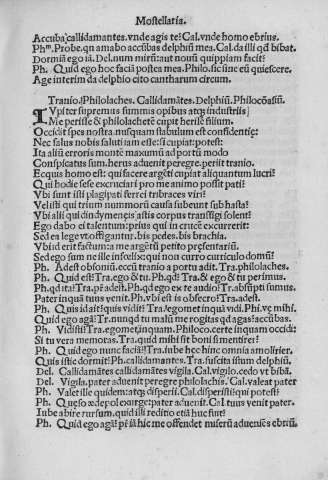 Mostellaria.
Accuba callidamantes. vnde agis te? Cal. vnde homo ebrius.
Phm. Probe. qn amabo accūbas delphiū mea. Cal. da illi qđ bibat.
Dormiā ego iā. Del. num mirū: aut nouū quippiam facit?
Ph. Quid ego hoc faciā postea mea. Philo. sic sine eū quiescere.
Age interim da delphio cito cantharum circum.
Tranio. Philolaches. Callidamātes. Delphiū. Philocōasiū.
IVpiter supremus summis opibus atqʒ industriis
Me perisse & philolachetē cupit herilē filium.
Occidit spes nostra. nusquam stabulum est confidentię:
Nec salus nobis saluti iam esse: si cupiat: potest:
Ita aliū erroris montē maxumū ad portū modo
Conspicatus sum. herus aduenit peregre. periit tranio.
Ecquis homo est: qui facere argēti cupiat aliquantum lucri?
Qui hodie sese excruciari pro me animo possit pati?
Vbi sunt isti plagipati ferrei tribraces viri?
Vel isti qui trium nummorū causa subeunt sub hasta?
Vbi alii qui dindymenęis astis corpus transfigi solent?
Ego dabo ei talentum: prius qui in crucē excurrerit:
Sed ea lege vt offigantur. bis pedes. bis brachia.
Vbi id erit factum: a me argētū petito pręsentariū.
Sed ego sum ne ille infelix: qui non curro curriculo domū?
Ph. Adest obsoniū. eccū tranio a portu adit. Tra. philolaches.
Ph. Quid est? Tra. ego & tu. Ph. qđ? Tra. & ego & tu perimus.
Ph. qđ ita? Tra. pr̄ adest. Ph. qđ ego ex te audio? Tra. absūpti sumus.
Pater inquā tuus venit. Ph. vbi est is obsecro? Tra. adest.
Ph. Quis id ait? quis vidit? Tra. egomet inquā vidi. Ph. vę mihi.
Quid ego agā? Tra. nunqđ tu malū me rogitas qd agas? accūbas.
Ph. Vidisti? Tra. egomet, inquam. Philoco. certe inquam occidi:
Si tu vera memoras. Tra. quid mihi sit boni si mentirer?
Ph. Quid ego nunc faciā? Tra. iube hęc hinc omnia amolirier.
Quis istic dormit? Ph. callidamantes. Tra. suscita istum delphiū.
Del. Callidamātes callidamātes vigila. Cal. vigilo. cedo vt bibā.
Del. Vigila. pater aduenit peregre philolachis. Cal. valeat pater
Ph. Valet ille quidem: atqʒ disperii. Cal. disperisti: qui potest?
Ph. Quęso ædepol exurge: pater aduenit. Cal. tuus venit pater.
Iube abire rursum. quid illi reditio etiā huc fuit?
Ph. Quid ego agā? pr̄ iā hic me offendet miserū adueniēs ebriū.